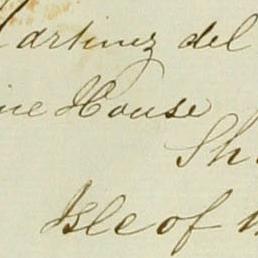 Martinez del
House
Isle of